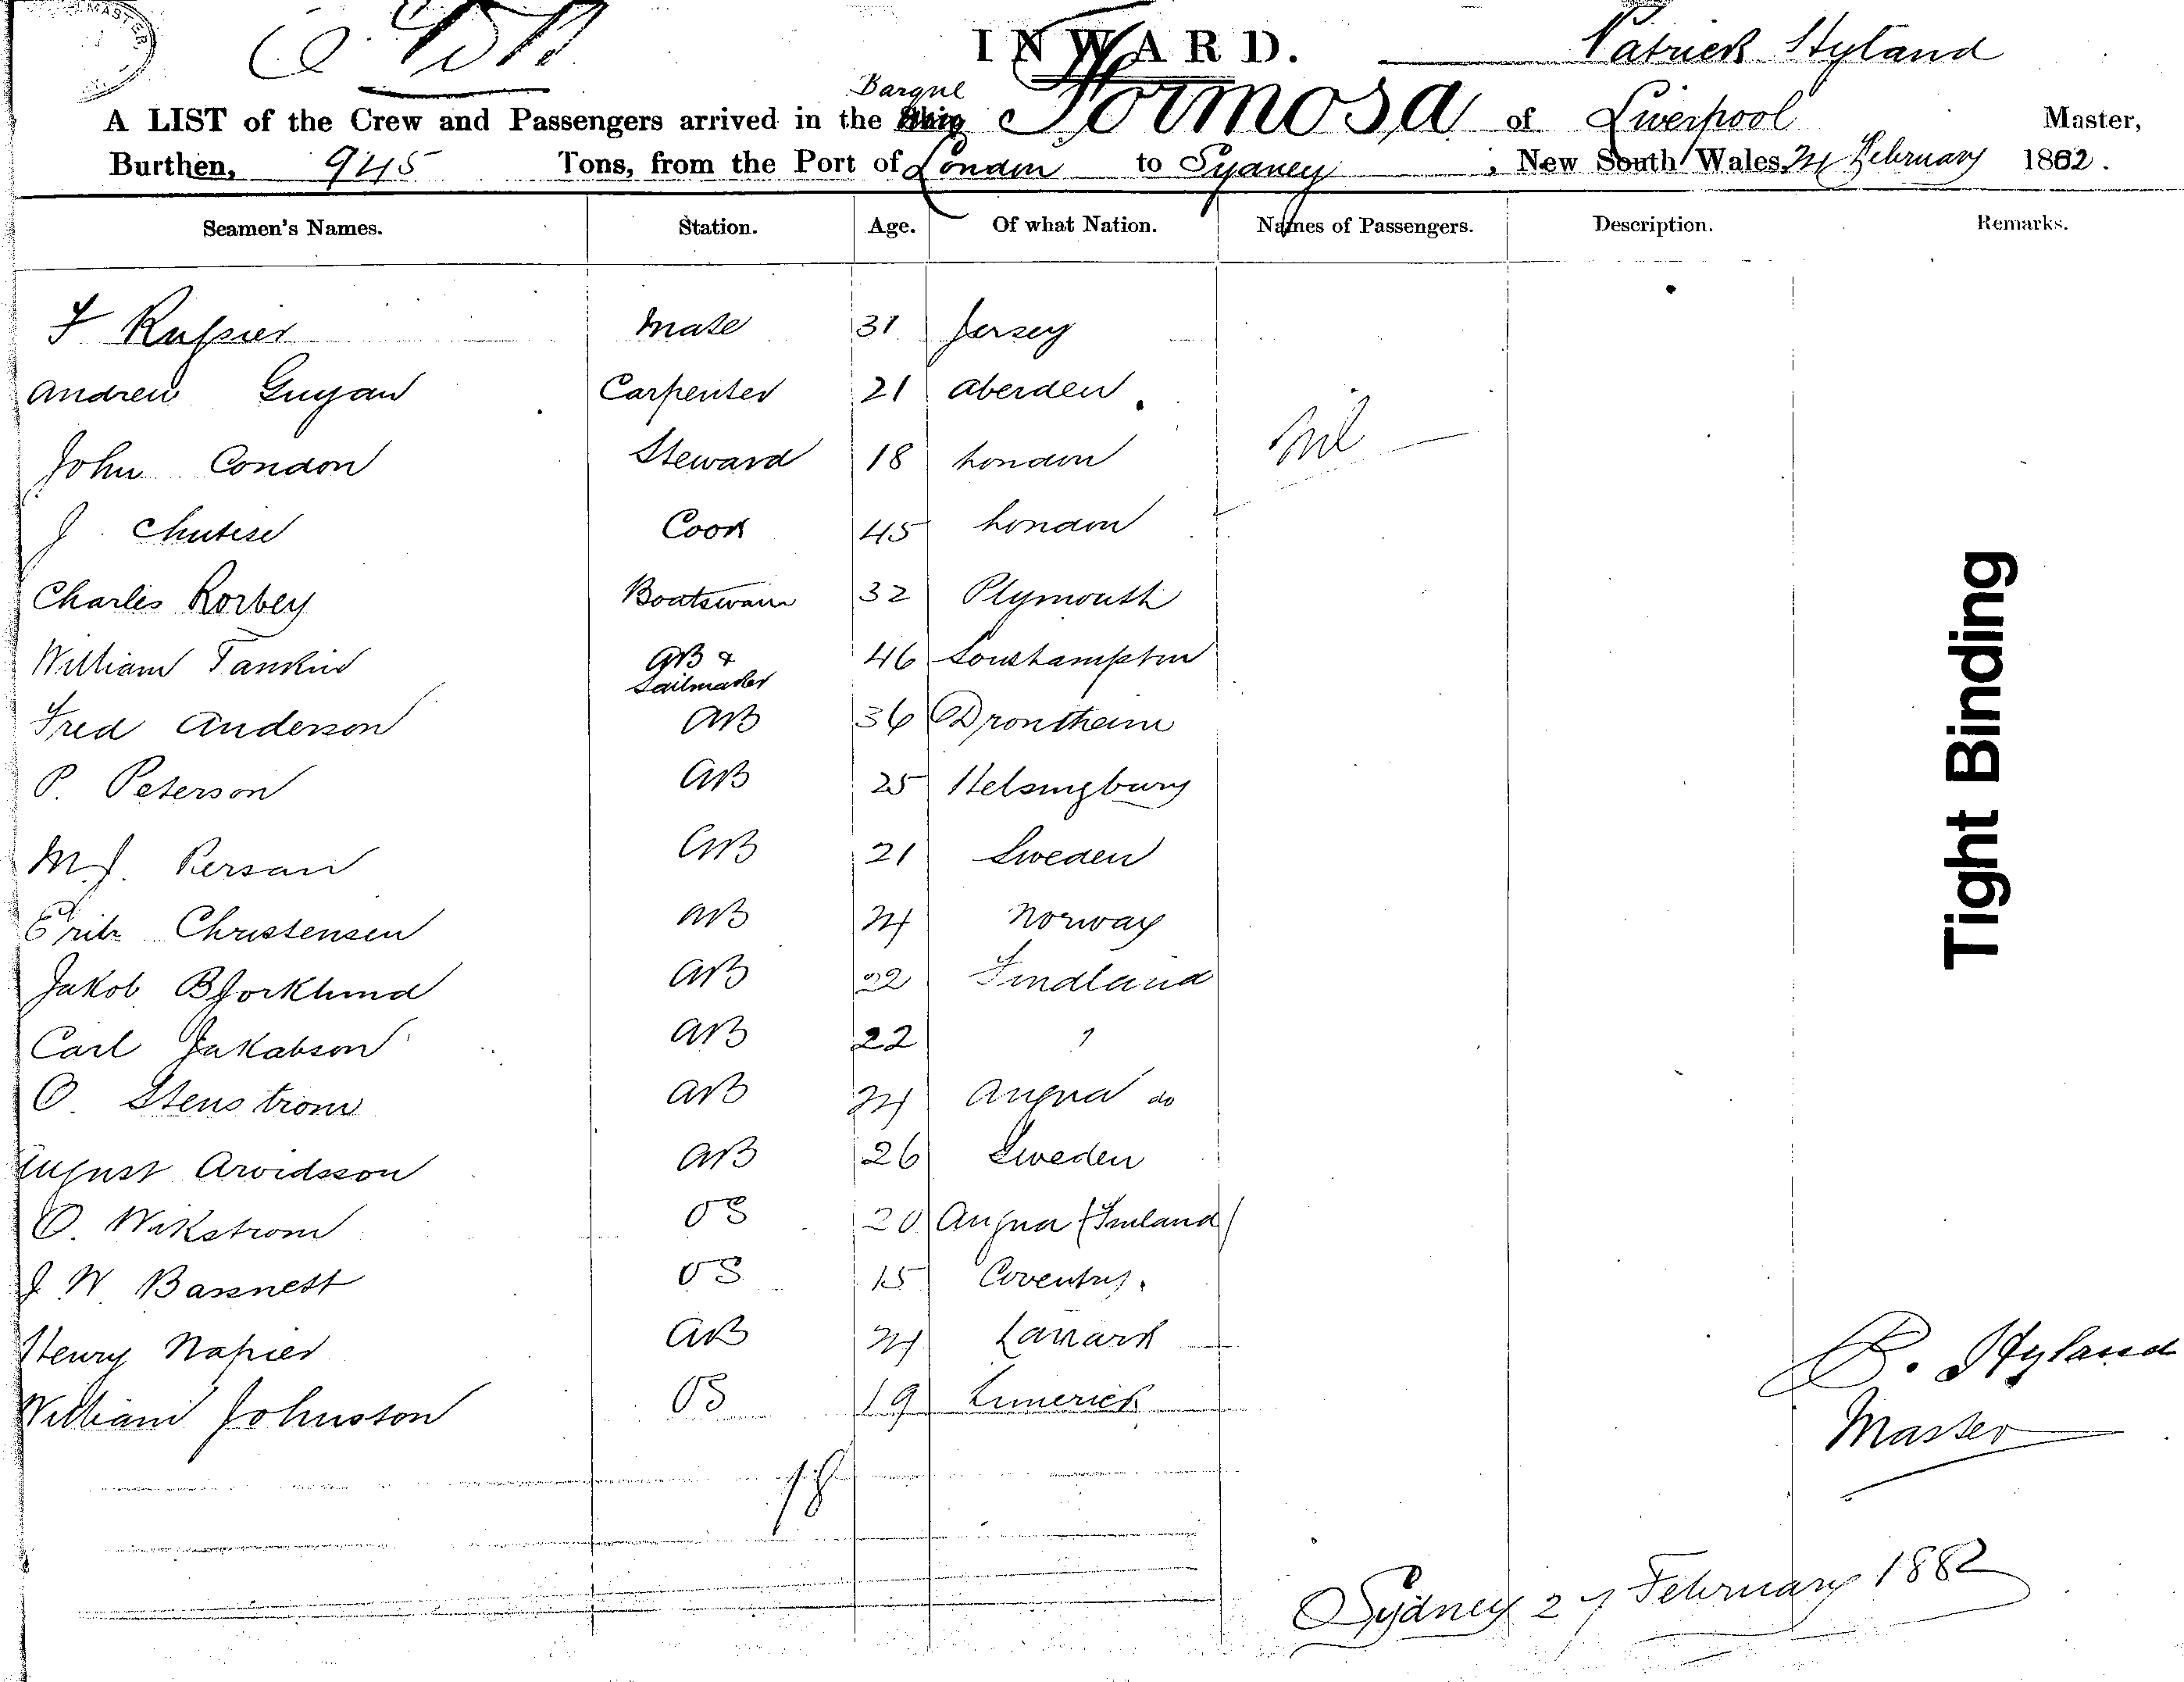 MASTER,
INWARD. Patrick Hyland
Barque
A LIST of the Crew and Passengers arrived in the Ship Formosa of Liverpool Master,
Burthen, 945 Tons, from the Port of London to Sydney, New South Wales, 24 February 1882.
Seamen's Names. Station. Age. Of what Nation. Names of Passengers. Description. Remarks.
F Mate 31 Jersey
Andrew Guyan Carpenter 21 Aberdeen
John Condon Steward 18 London Nil
J. Cook 45 London
Charles Korbey Boatswain 32 Plymouth
William Tankin AB & Sailmaker 46 Southampton
Fred Anderson AB 36 Drontheim
P. Peterson AB 25 Helsingburg
M.J. Persan AB 21 Sweden
Fritz Christensen AB 24 Norway
Jakob Bjorklund AB 22 Findland
Carl Jakabson AB 22 "
O. Stenstrom AB 24 do
August Arvidsson AB 26 Sweden
O. Wikstrom OS 20 (Finland)
J W Bassnett OS 15 Coventry.
Henry Napier AB 24 Lanark
William Johnston OS 19 Limerick
18
P. Hyland
Master
Sydney 24 February 1882
Tight Binding